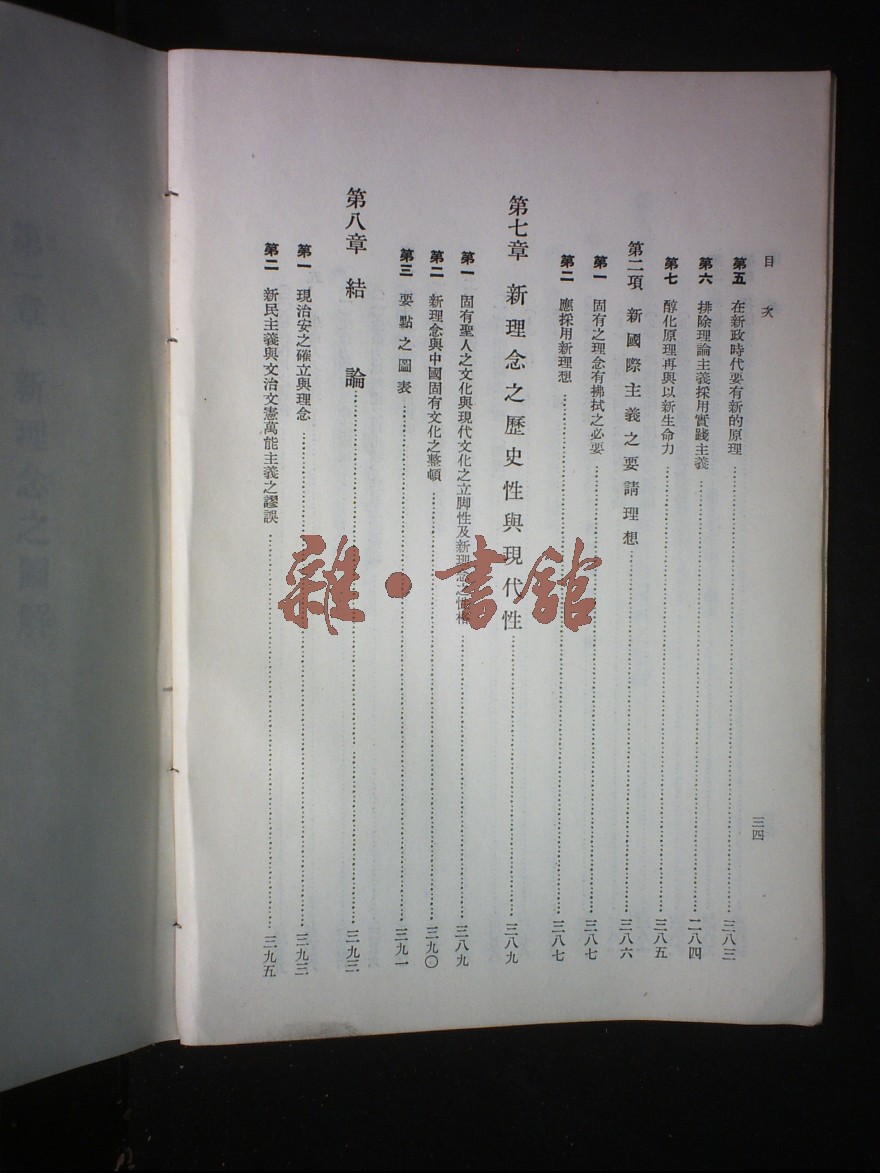 目次
第五 在新政時代要有新的原理……三八三
第六 排除理論主義採用實踐主義……二八四
第七 醇化原理再與以新生命力……三八五
第二項 新國際主義之要請理想……三八六
第一 固有之理念有拂拭之必要……三八七
第二 應採用新理想……三八七
第七章 新理念之歷史性與現代性……三八九
第一 固有聖人之文化與現代文化之立脚性及新理念之……三八九
第二 新理念與中國固有文化之整頓……三九〇
第三 要點之圖表……三九一
第八章 結論……三九三
第一 現治安之確立與理念……三九三
第二 新民主義與文治文憲萬能主義之謬誤……三九五
三四
雜·書館